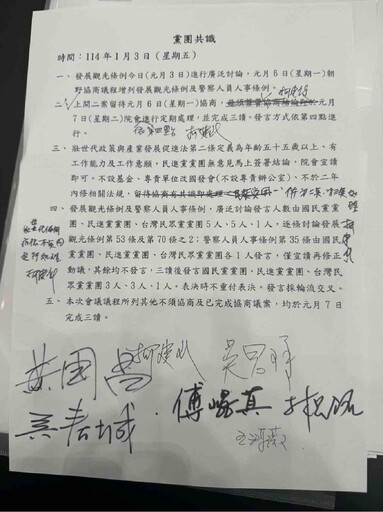 黨團共識
時間：114 年 1 月 3 日（星期五）
一、發展觀光條例今日（元月 3 日）進行廣泛討論，元月 6 日（星期一）朝
野協商議程增列發展觀光條例及警察人員人事條例。
二、上開二案留待元月 6 日（星期一）協商，元月
7 日（星期二）院會進行定期處理，並完成三讀。發言方式依第四點進
行。
三、壯世代政策與產業發展促進法第二條定義為年齡五十五歲以上、有
工作能力及工作意願，民進黨黨團無意見馬上簽署結論，院會宣讀
即可。不設基金、專責單位改國發會（不設專責辦公室）、不於二年
內修相關法規，留待協商有共識即處理
四、發展觀光條例及警察人員人事條例，廣泛討論發言人數由國民黨黨
團、民進黨黨團、台灣民眾黨黨團 5 人、5 人、1 人，逐條討論發展
觀光條例第 53 條及第 70 條之 2；警察人員人事條例第 35 條由國民黨
黨團、民進黨黨團、台灣民眾黨團各 1 人發言，僅宣讀再修正
動議，其餘均不發言，三讀後發言國民黨黨團、民進黨黨團、台灣民
眾黨黨團 3 人、3 人、1 人。表決時不重付表決。發言採輪流交叉。
五、本次會議議程所列其他不須協商及已完成協商議案，均於元月 7 日
完成三讀。
黃國昌 柯建銘 吳思瑤
吳春城 傅崐萁
王鴻薇